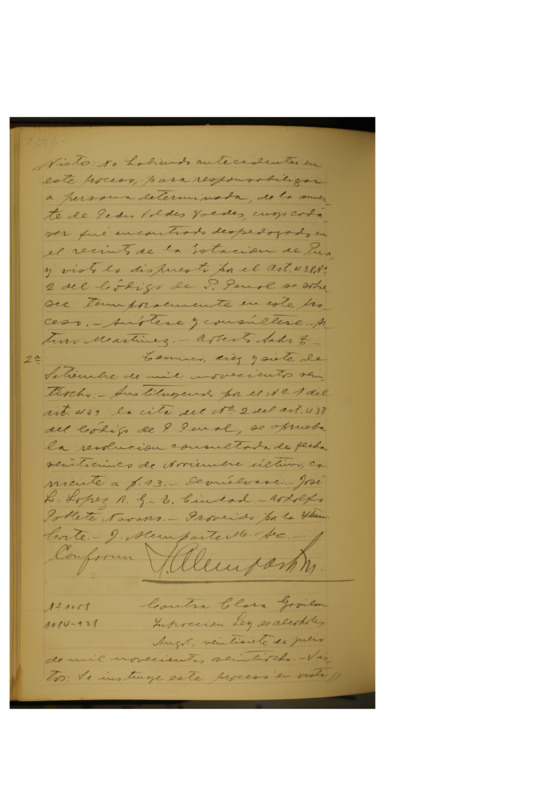 Visto: No habiendo antecedentes en
este proceso, para responsabilizar
a persona determinada, de la muer-
te de Pedro Valdes Valdes, cuyo cadá
ver fué encontrado despedazado en
el recinto de la Estacion de Pua,
y visto lo dispuesto por el art. 438 Nº
2 del Código de P. Penal se sobre
see temporalmente en este pro-
ceso. - Anótese y consúltese. - Ar
turo Martinez. - Alberto
2ª
Temuco, diez y siete de
Setiembre de mil novecientos vein-
tiocho. - Sustituyendo por el Nº 1 del
art. 439 la cita del Nº 2 del art. 438
del Código de P Penal, se aprueba
la resolucion consultada de fecha
veinticinco de Noviembre último, co
rriente a f 13. - Devuélvase. - José
L. Lopez R. G. - E. Ciudad - Rodolfo
Poblete Navarro. - Proveido por la Iltma
Corte. - J. Alemparte U. Sec. -
Conforme
Nº 1059 Contra Clara Gavilan
1084-928 Infraccion Ley de alcoholes
Angol, veintisiete de julio
de mil novecientos veintiocho. - Vis-
tos: Se instruye este proceso en vista